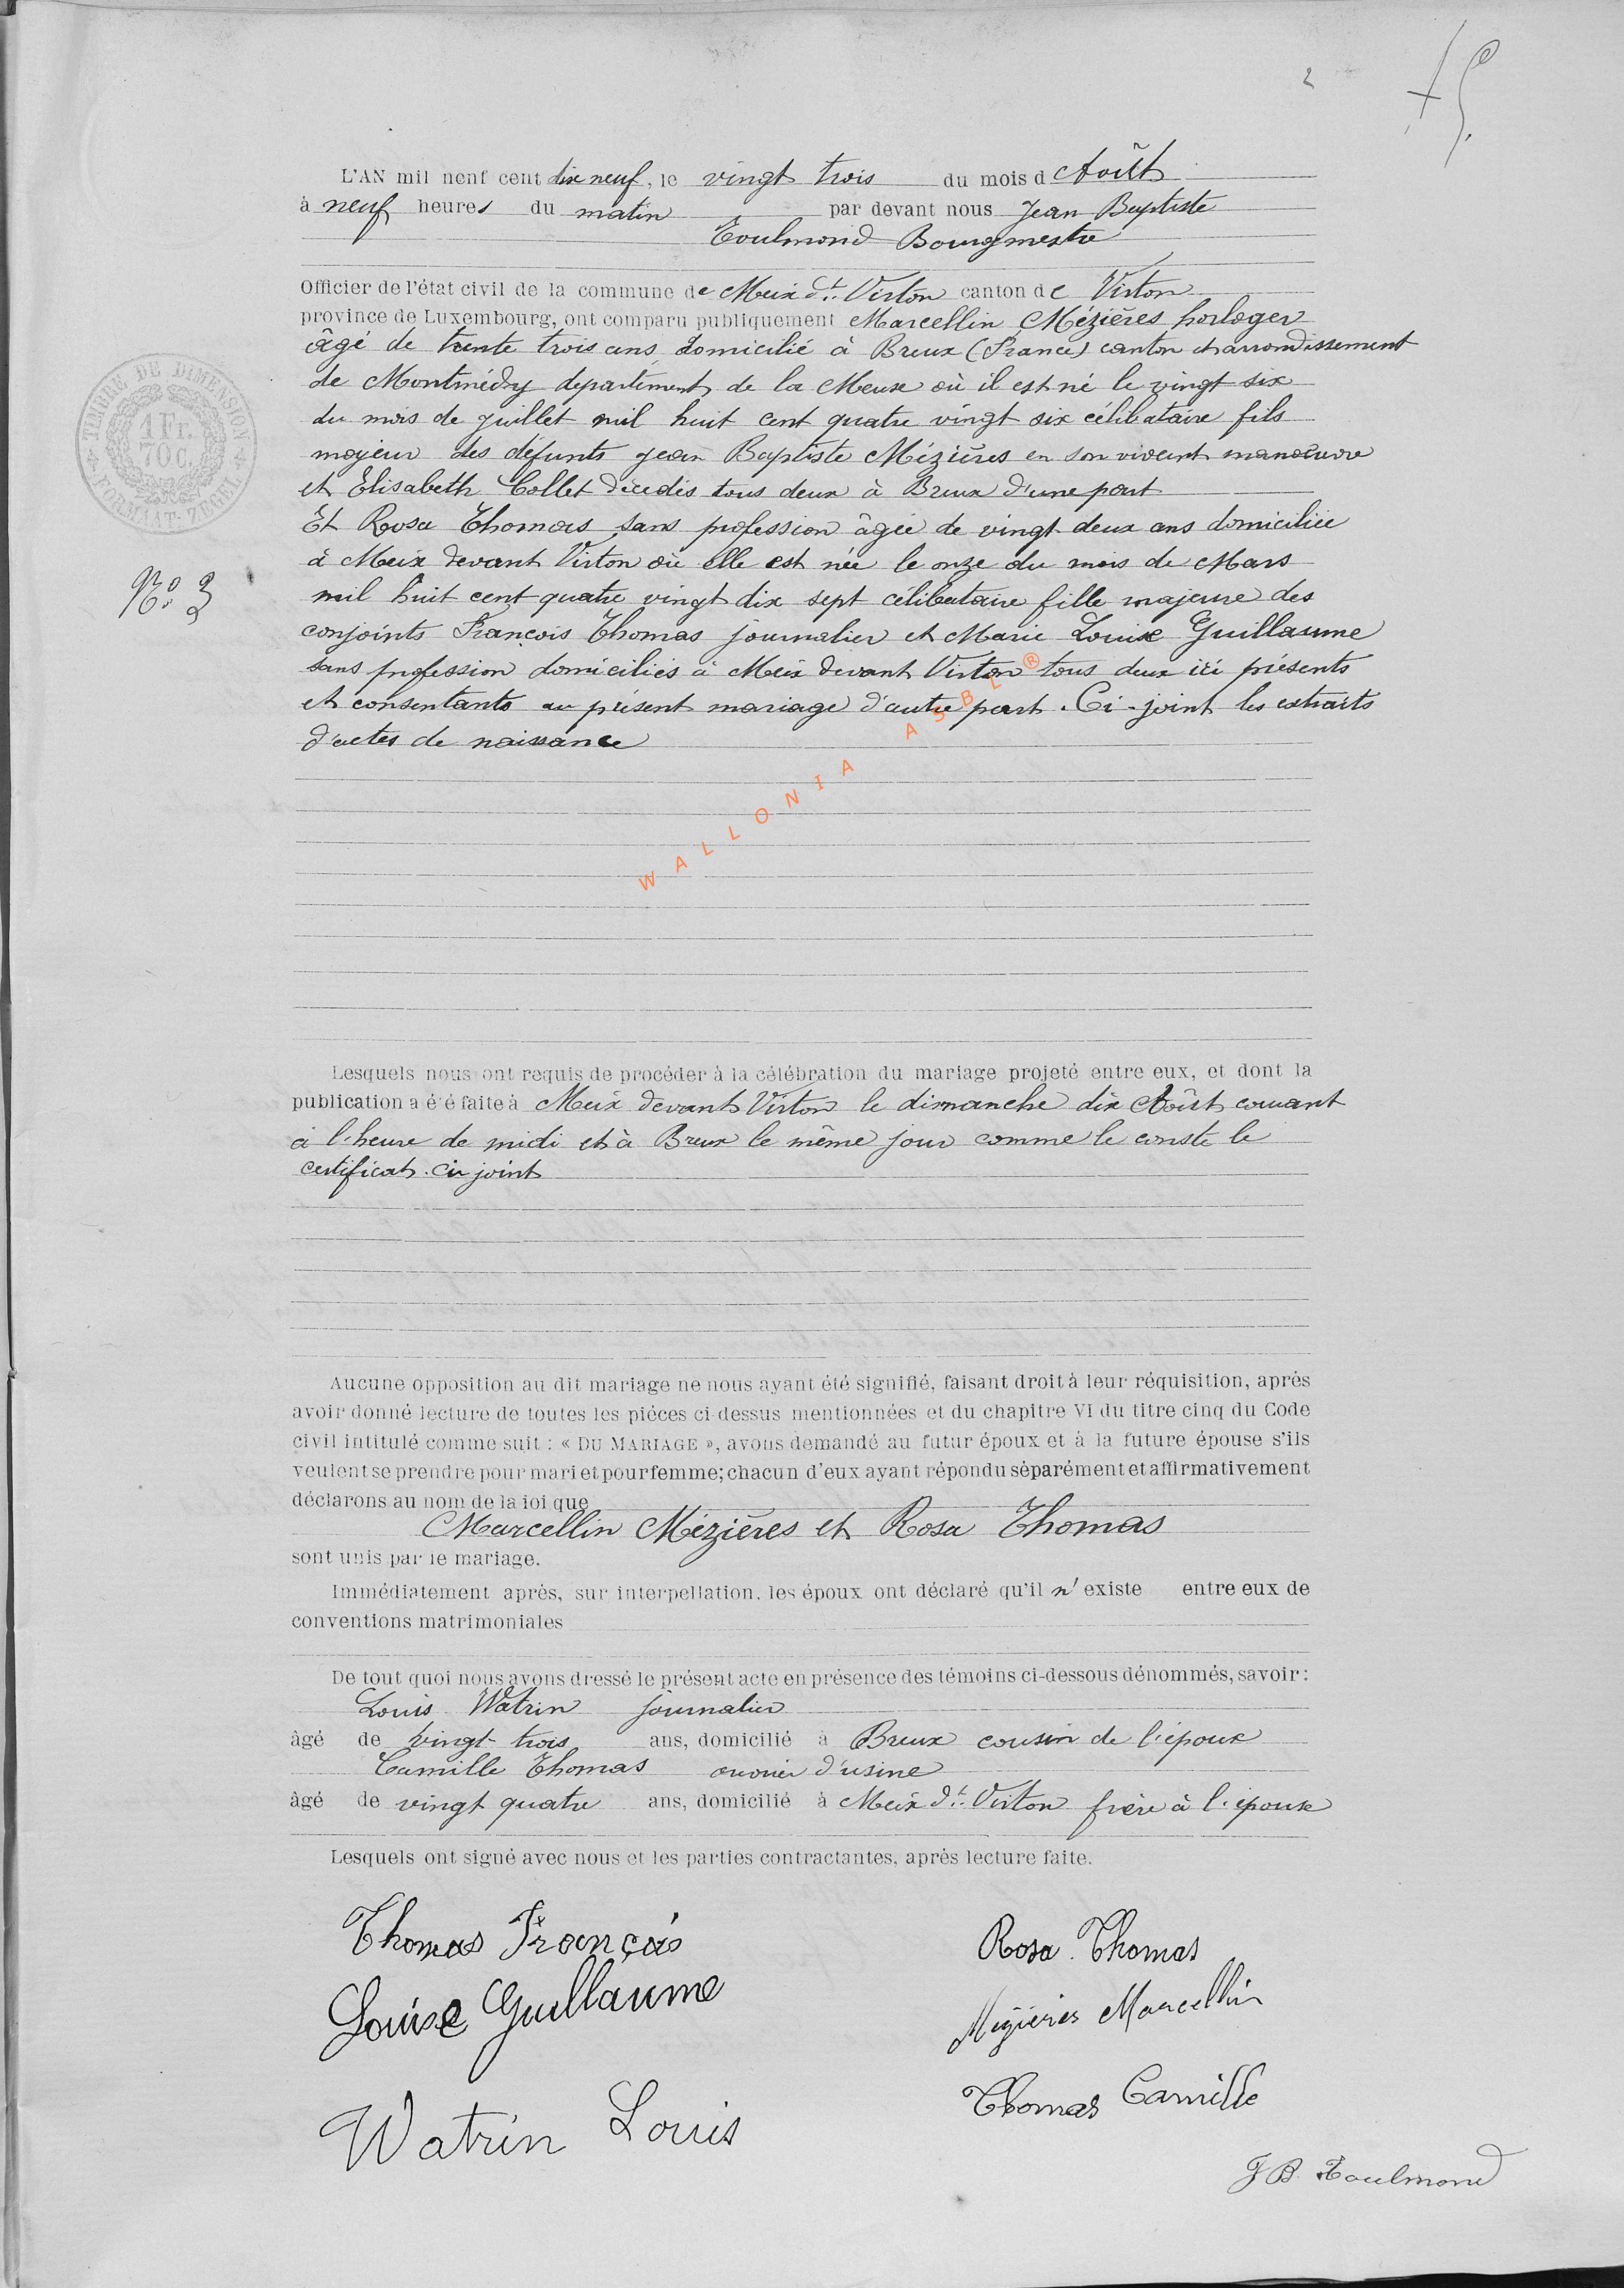 2
L'AN mil neuf cent dix neuf, le vingt trois du mois d Août
à neuf heures du matin par devant nous Jean Baptiste
Toulmond Bourgmestre
Officier de l'état civil de la commune de Meix dt. Virton canton de Virton
province de Luxembourg, ont comparu publiquement Marcellin Mézières horloger
âgé de trente trois ans domicilié à Breux (France) canton et arrondissement
de Montmédy département de la Meuse où il est né le vingt six
du mois de Juillet mil huit cent quatre vingt six célibataire fils
majeur des défunts Jean Baptiste Mézières en son vivant manœuvre
et Elisabeth Collet décédés tous deux à Breux d'une part
Et Rosa Thomas sans profession âgée de vingt-deux ans domiciliée
à Meix devant Virton où elle est née le onze du mois de Mars
mil huit cent quatre vingt dix sept célibataire fille majeure des
conjoints François Thomas journalier et Marie Louise Guillaume
sans profession domiciliés à Meix devant Virton tous deux ici présents
et consentants au présent mariage d'autre part. Ci-joint les extraits
d'actes de naissance
TIMBRE DE DIMENSION
1 Fr.
70 C.
FORMAAT-ZEGEL
No: 3
WALLONIA ASBL ®
Lesquels nous ont requis de procéder à la célébration du mariage projeté entre eux, et dont la
publication a été faite à Meix devant Virton le dimanche dix Août courant
à l'heure de midi et à Breux le même jour comme le conste le
certificat ci-joint
Aucune opposition au dit mariage ne nous ayant été signifié, faisant droit à leur réquisition, après
avoir donné lecture de toutes les pièces ci dessus mentionnées et du chapitre VI du titre cinq du Code
civil intitulé comme suit : « DU MARIAGE », avons demandé au futur époux et à la future épouse s'ils
veulent se prendre pour mari et pour femme; chacun d'eux ayant répondu séparément et affirmativement
déclarons au nom de la loi que
Marcellin Mézières et Rosa Thomas
sont unis par le mariage.
Immédiatement après, sur interpellation, les époux ont déclaré qu'il n'existe entre eux de
conventions matrimoniales
De tout quoi nous avons dressé le présent acte en présence des témoins ci-dessous dénommés, savoir :
Louis Watrin journalier
âgé de vingt-trois ans, domicilié à Breux cousin de l'époux
Camille Thomas ouvrier d'usine
âgé de vingt quatre ans, domicilié à Meix dt. Virton frère à l'épouse
Lesquels ont signé avec nous et les parties contractantes, après lecture faite.
Thomas François
Rosa Thomas
Louise Guillaume
Mézières Marcellin
Watrin Louis
Thomas Camille
J B Toulmond